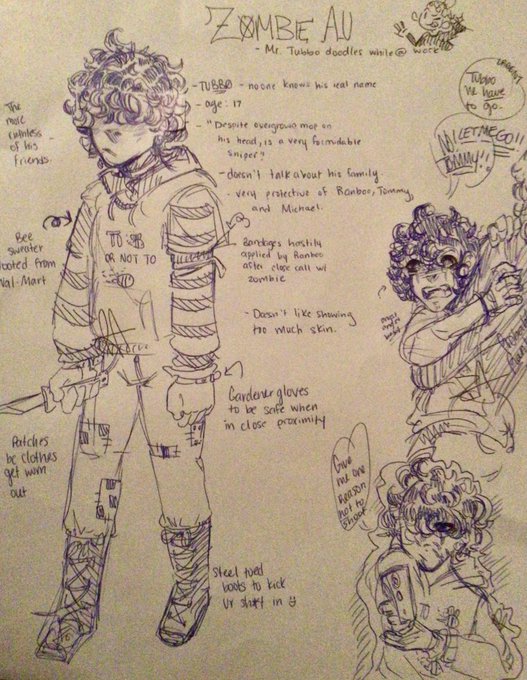 ZOMBIE AU
- Mr. Tubbo doodles while @ work
- TUBBO - no one knows his real name
- age: 17
- "Despite overgrown mop on
his head, is a very formidable
sniper"
- doesn't talk about his family.
- very protective of Ranboo, Tommy,
and Michael.
The
more
ruthless
of his
friends.
Bee
sweater
looted from
Wal-Mart
TUB
OR NOT TO
Bandages hastily
applied by Ranboo
after close call w/
zombie
- Doesn't like showing
too much skin.
Gardener gloves
to be safe when
in close proximity
Patches
bc clothes
get worn
out
Steel toed
boots to kick
ur sh*t in :)
Tubbo
we have
to go.
NO! LET ME GO!!
TOMMY!!
Give
me one
reason
not to
shoot